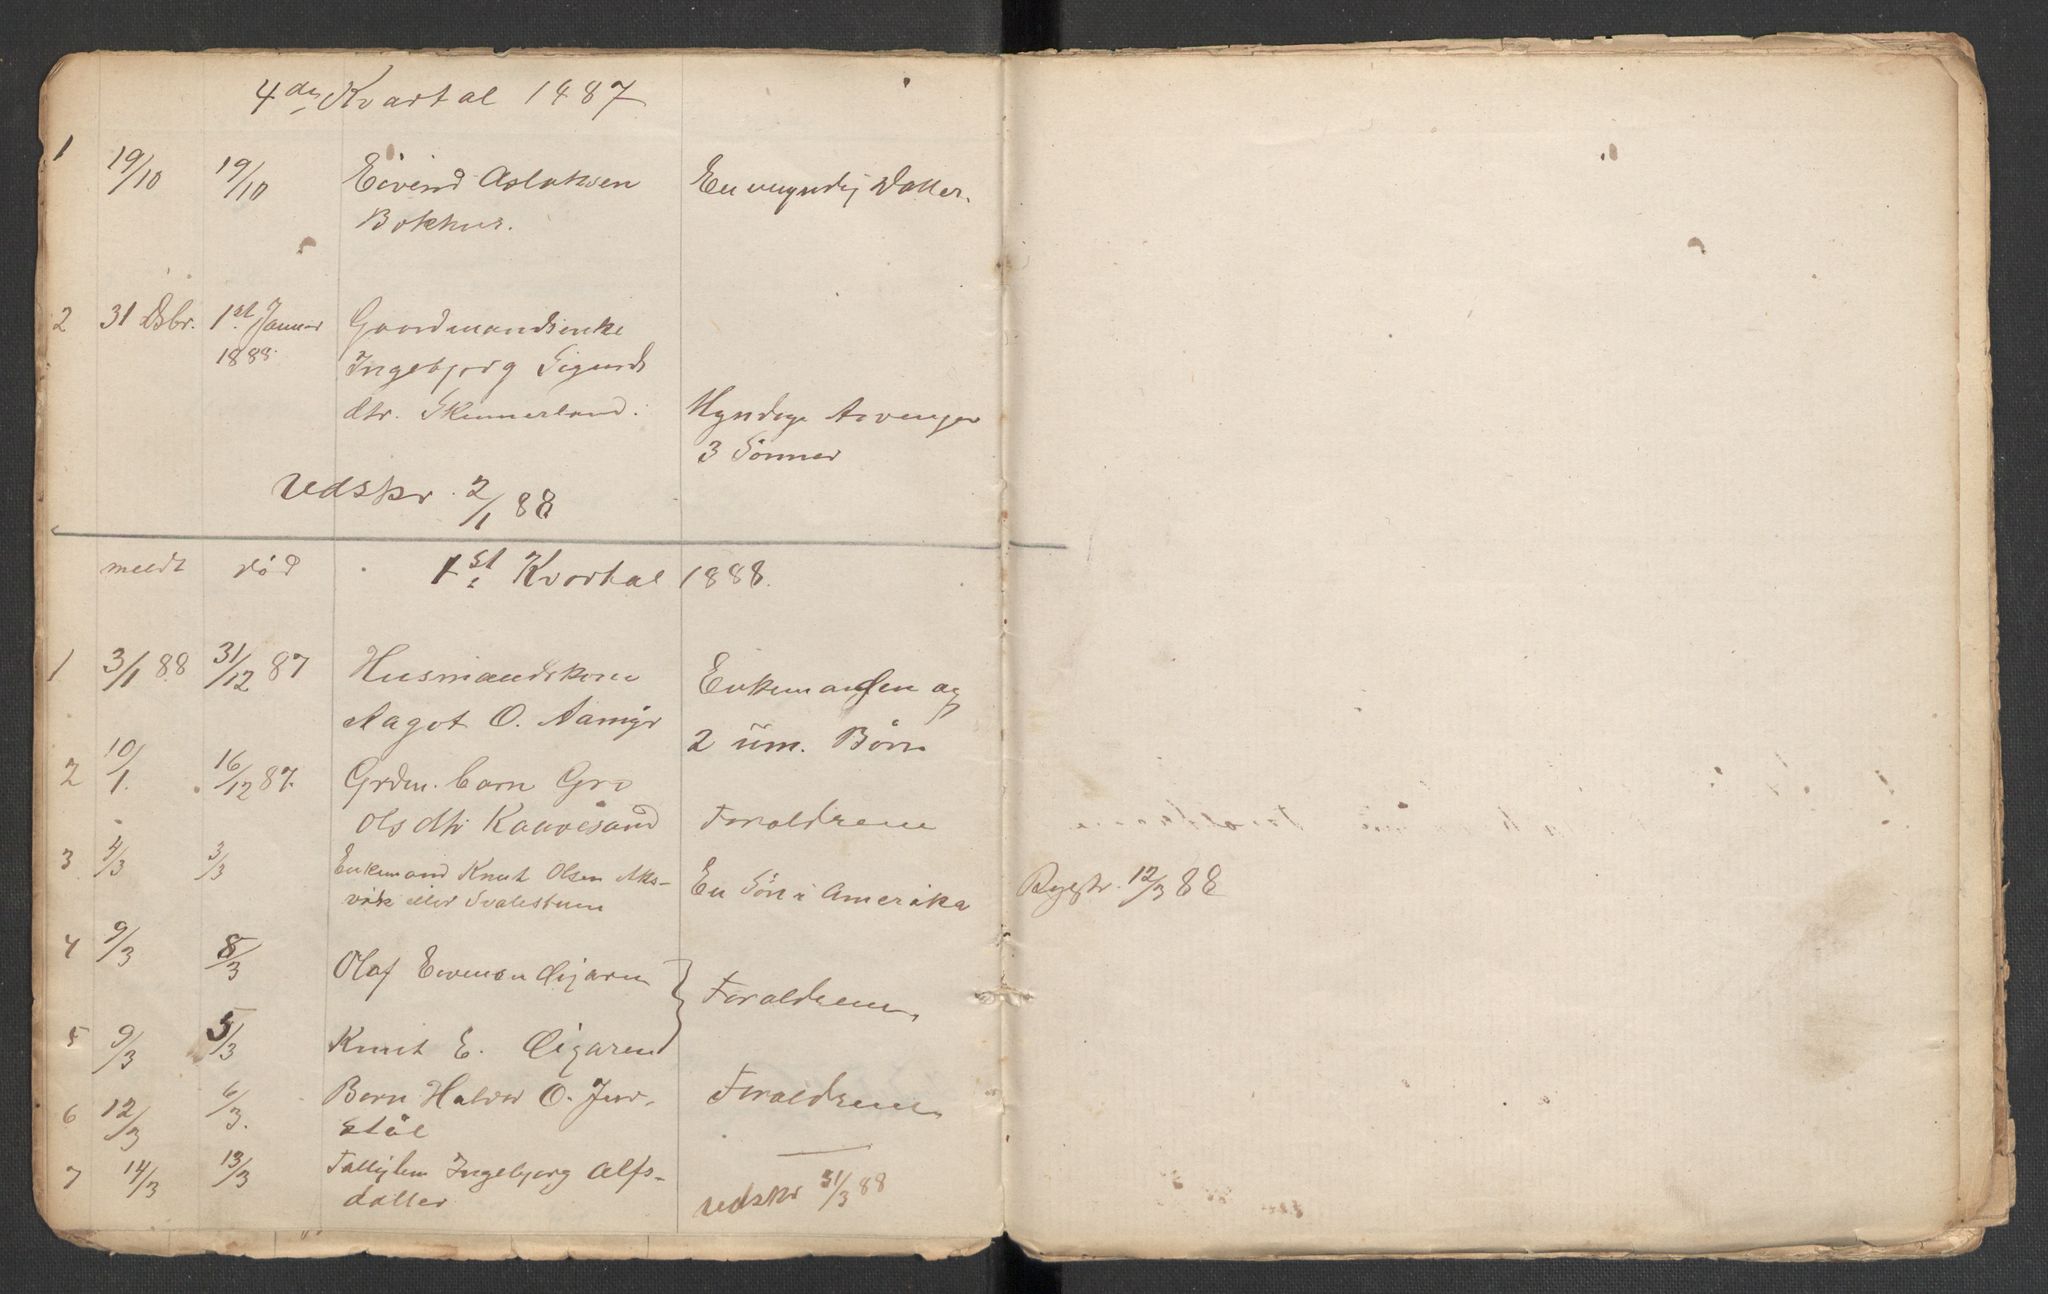 4de Kvartal 1887
1 19/10 19/10 Eivind Aslaksen En umyndig Datter.
Bokhus.
2 31 Dsbr. 1st Januar Gaardmandsenke
1888 Ingebjorg Sigurds
dtr. Skinnerland. Myndige Arvenger
3 Sönner
Udskr. 2/1 88
meldt död 1st Kvartal 1888.
1 3/1 88 31/12 87 Husmandskone Enkemanden og
Aagot O. 2 um. Børn
2 10/1. 16/12 87. Grdm. barn Gro
Olsdtr Kaavesand Foraldrene
3 4/3 3/3 Enkemand Knut Olsen En Sön i Amerika Regstr. 12/3 88
vik eller
4 9/3 8/3 Olaf Evensen Foraldrene
5 9/3 5/3 Knut E.
6 12/3 6/3. Barn Halvor O. Juv- Foraldrene
stöl
7 14/3 13/3 Fattiglem Ingebjorg Alfs-
datter udskr 31/3 88